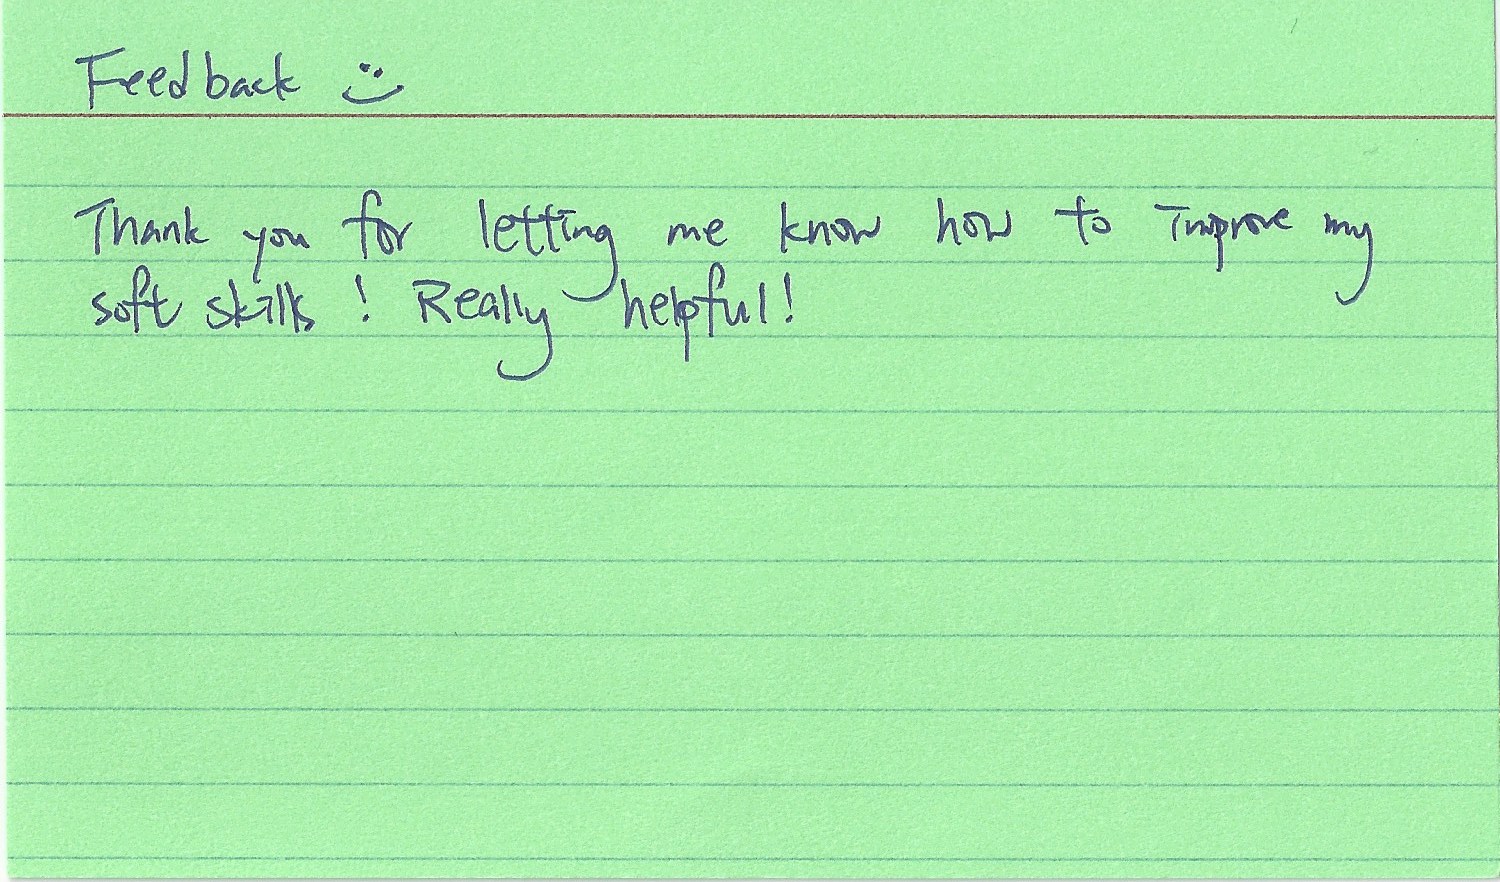 Feedback
Thank you for letting me know how to improve my
soft skills! Really helpful!